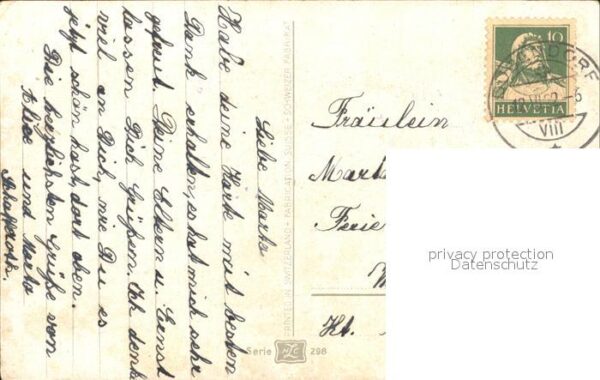 Liebe Marta
Habe deine Karte mit besten
Dank erhalten, es hat mich sehr
gefreut. Deine Eltern u. Ernst
lassen Dich Grüßen. Ich denke
viel an Dich, wie Du es
jetzt schön hast, dort oben.
Die herzlichsten Grüße von
Alice und Marta
PRINTED IN SWITZERLAND - FABRICATION SUISSE - SCHWEIZER FABRIKAT
Serie 298
10
HELVETIA
VIII
Fräulein
Marta
Ferie
Kt.
privacy protection
Datenschutz